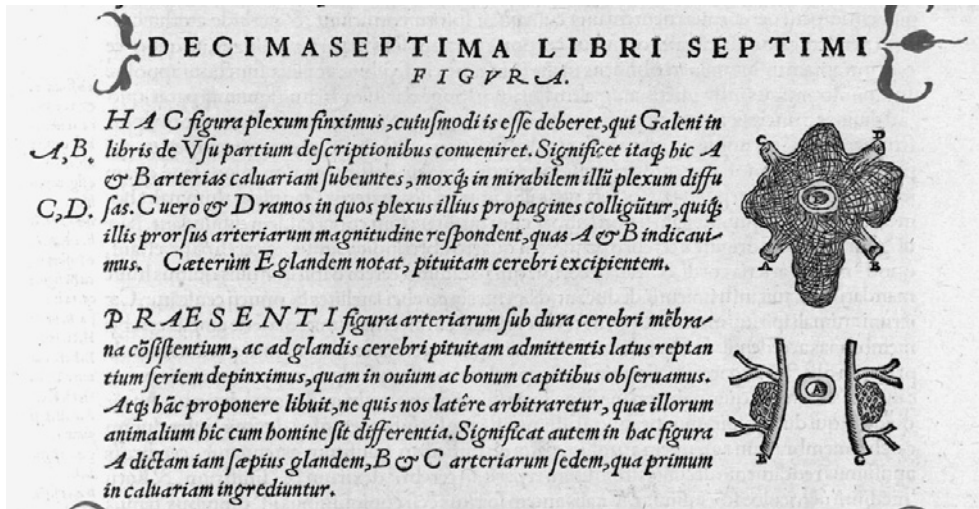 DECIMASEPTIMA LIBRI SEPTIMI
FIGVRA.
HAC figura plexum finximus, cuiusmodi is esse deberet, qui Galeni in
A, B. libris de Vsu partium descriptionibus conueniret. Significet itaq; hic A
& B arterias caluariam subeuntes, moxq́; in mirabilem illũ plexum diffu
C, D. sas. C uero & D ramos in quos plexus illius propagines colligũtur, quiq́;
illis prorsus arteriarum magnitudine respondent, quas A & B indicaui-
mus. Cæterùm E glandem notat, pituitam cerebri excipientem.
C D
E
A B
PRAESENTI figura arteriarum sub dura cerebri mẽbra-
na cõsistentium, ac ad glandis cerebri pituitam admittentis latus reptan
tium seriem depinximus, quam in ouium ac boum capitibus obseruamus.
Atq; hãc proponere libuit, ne quis nos latêre arbitraretur, quæ illorum
animalium hic cum homine sit differentia. Significat autem in hac figura
A dictam iam sæpius glandem, B & C arteriarum sedem, qua primum
in caluariam ingrediuntur.
A
B C